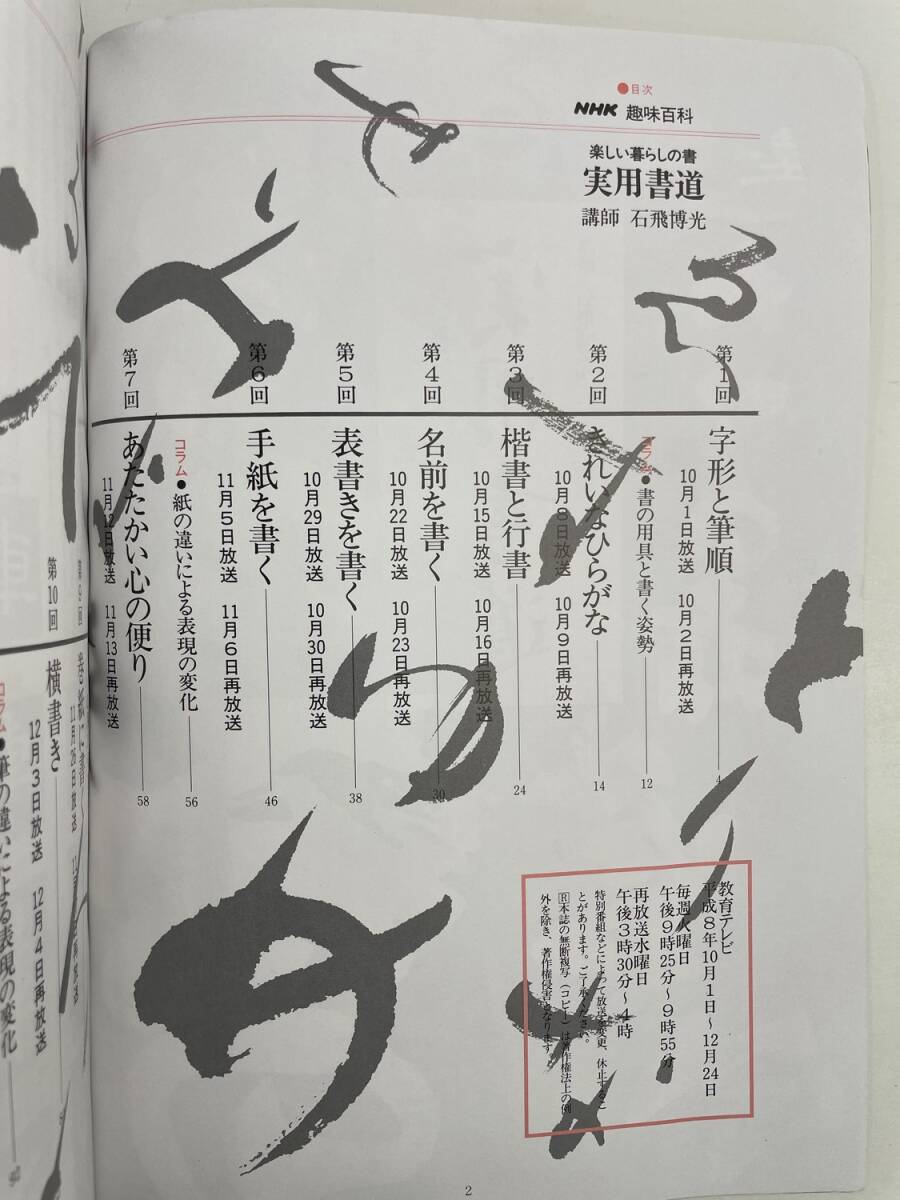 ●目次
NHK 趣味百科
楽しい暮らしの書
実用書道
講師 石飛博光
第1回
字形と筆順
4
10月1日放送 10月2日再放送
コラム●書の用具と書く姿勢
12
第2回
きれいなひらがな
14
10月8日放送 10月9日再放送
第3回
楷書と行書
24
10月15日放送 10月16日再放送
第4回
名前を書く
30
10月22日放送 10月23日再放送
第5回
表書きを書く
38
10月29日放送 10月30日再放送
第6回
手紙を書く
46
11月5日放送 11月6日再放送
コラム●紙の違いによる表現の変化
56
第7回
あたたかい心の便り
58
11月12日放送 11月13日再放送
教育テレビ
平成8年10月1日〜12月24日
毎週火曜日
午後9時25分〜9時55分
再放送水曜日
午後3時30分〜4時
特別番組などによって放送を変更、休止するこ
とがあります。ご了承ください。
Ⓡ本誌の無断複写(コピー)は著作権法上の例
外を除き、著作権侵害となります。
2
第9回
巻紙に書
11月26日放送
第10回
横書き
12月3日放送 12月4日再放送
コラム●筆の違いによる表現の変化